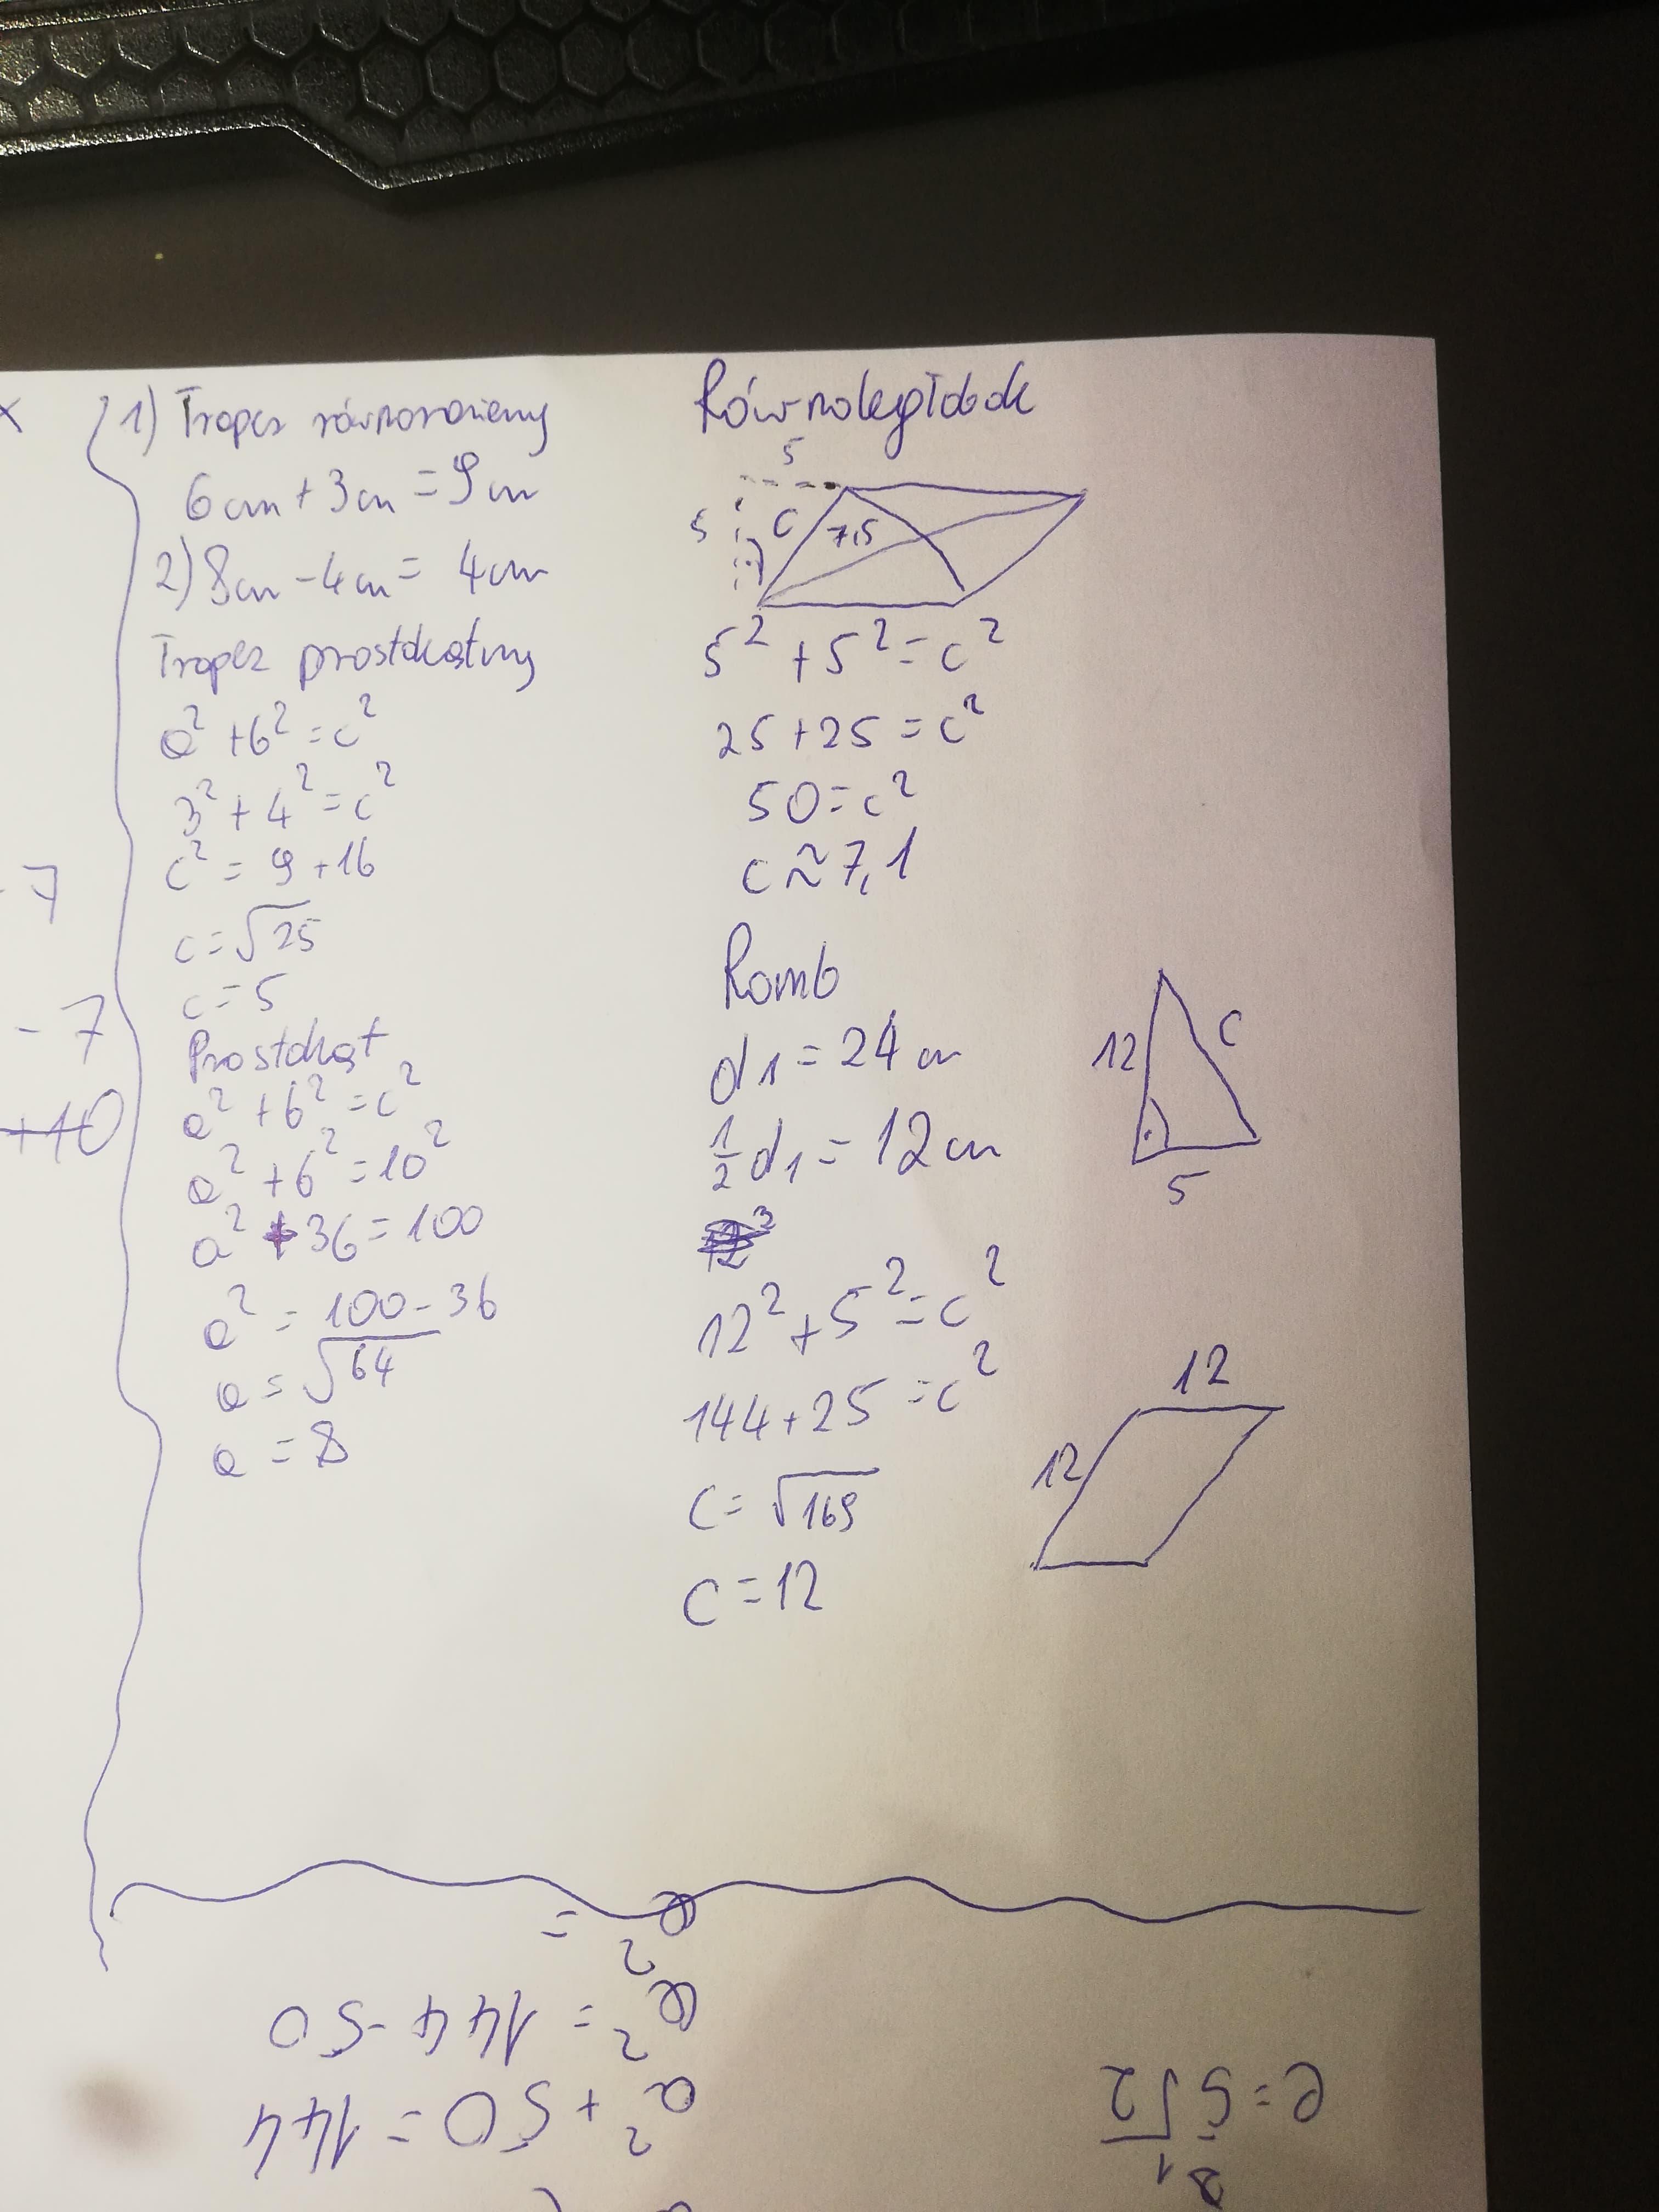 x
1) Trapez równoramienny
6cm + 3cm = 9cm
2) 8cm - 4cm = 4cm
Trapez prostokątny
a² + b² = c²
3² + 4² = c²
c² = 9 + 16
c = √25
c = 5
Prostokąt
a² + b² = c²
a² + 6² = 10²
a² + 36 = 100
a² = 100 - 36
a = √64
a = 8
-7
-7
+10
Równoległobok
5
5
c
7,5
5² + 5² = c²
25 + 25 = c²
50 = c²
c ≈ 7,1
Romb
d1 = 24 cm
½d1 = 12 cm
12² + 5² = c²
144 + 25 = c²
c = √169
c = 12
12
c
5
12
12
a² + 50 = 144
a² = 144 - 50
a² =
e = 5√2